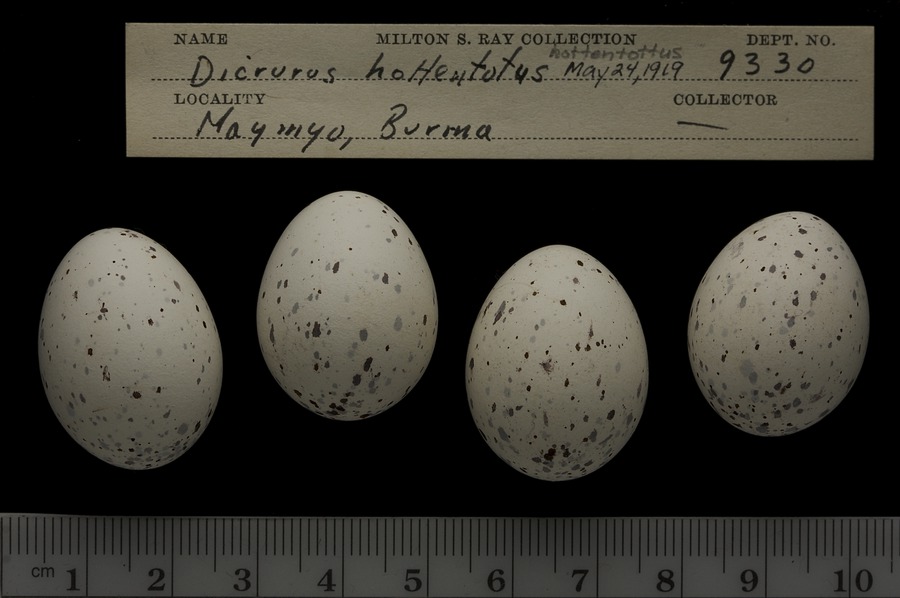 NAME MILTON S. RAY COLLECTION DEPT. NO.
hottentottus
Dicrurus hottentotus May 24, 1919 9330
LOCALITY COLLECTOR
Maymyo, Burma —
cm 1 2 3 4 5 6 7 8 9 10